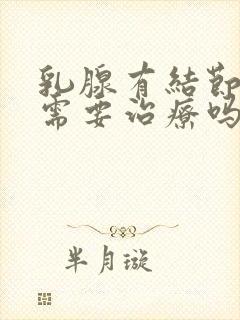 乳腺有結節
需要治療嗎
半月璇